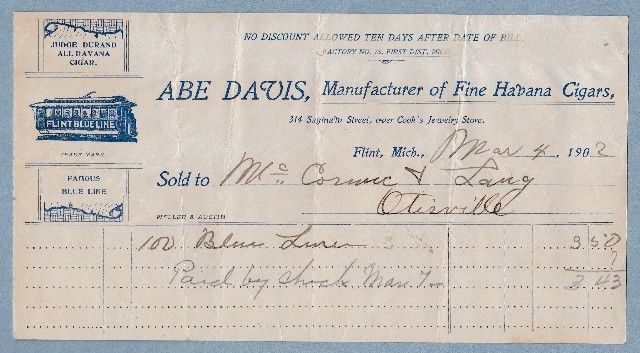 JUDGE DURAND
ALL HAVANA
CIGAR.
FLINT BLUE LINE
TRADE MARK
FAMOUS
BLUE LINE
WELLER & AUSTIN
NO DISCOUNT ALLOWED TEN DAYS AFTER DATE OF BILL.
FACTORY NO. 75, FIRST DIST. MICH.
ABE DAVIS, Manufacturer of Fine Havana Cigars,
314 Saginaw Street, over Cook's Jewelry Store.
Flint, Mich., Mar 4, 1902
Sold to Mc Cormic & Lang
Otisville
100 Blue Lines 3 50
7
Paid by check Mar 7 3 43